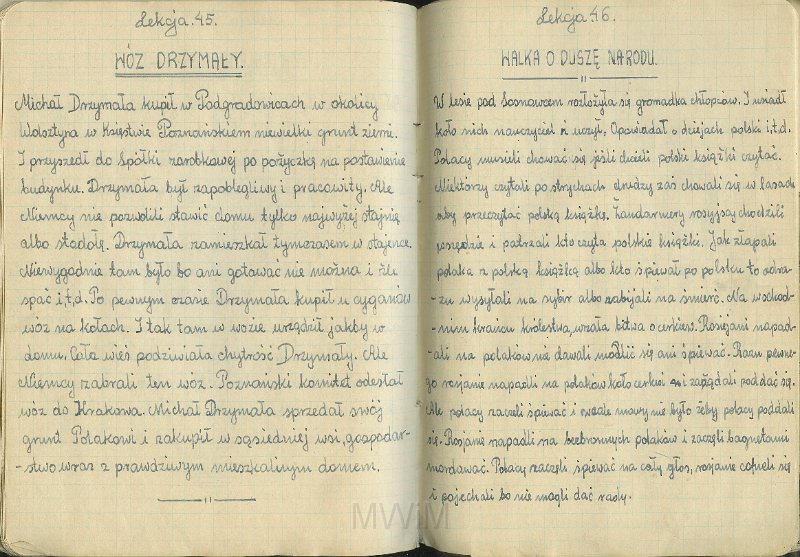 Lekcja 45.
WÓZ DRZYMAŁY.
Michał Drzymała kupił w Podgradowicach w okolicy
Wolsztyna w Księstwie Poznańskiem niewielki grunt ziemi.
I przyszedł do Spółki zarobkowej po pożyczkę na postawienie
budynku. Drzymała był zapobiegliwy i pracowity. Ale
Niemcy nie pozwolili stawić domu tylko najwyżej stajnię
albo stodołę. Drzymała zamieszkał tymczasem w stajence.
Niewygodnie tam było bo ani gotować nie można i źle
spać i.t.d. Po pewnym czasie Drzymała kupił u cyganów
wóz na kołach. I tak tam w wozie urządził jakby w
domu. Cała wieś podziwiała chytrość Drzymały. Ale
Niemcy zabrali ten wóz. Poznański komitet odesłał
wóz do Krakowa. Michał Drzymała sprzedał swój
grunt Polakowi i zakupił w sąsiedniej wsi, gospodar-
-stwo wraz z prawdziwym mieszkalnym domem.
Lekcja 46.
WALKA O DUSZĘ NARODU.
W lesie pod Sosnowcem rozłożyła się gromadka chłopców. I usiadł
koło nich nauczyciel i uczył. Opowiadał o dziejach polski i.t.d.
Polacy musieli chować się jeśli chcieli polski książki czytać.
Niektórzy czytali po strychach drudzy zaś chowali się w lasach
aby przeczytać polską książkę. Żandarmery rosyjscy chodzili
wszędzie i patrzali kto czyta polskie książki. Jak złapali
polaka z polską książką albo kto śpiewał po polsku to odra-
-zu wysyłali na sybir albo zabijali na śmierć. Na wschod-
-nim krańcu królestwa, wrzała bitwa o cerkiew. Rosjanie napad-
-ali na polaków nie dawali modlić się ani śpiewać. Razu pewne-
go rosjanie napadli na polaków koło cerkwi i zażądali poddać się.
Ale polacy zaczeli śpiewać i wcale mowy nie było żeby polacy poddali
się. Rosjanie napadli na bezbronnych polaków i zaczęli bagnetami
mordować. Polacy zaczęli śpiewać na cały głos, rosjanie cofneli się
i pojechali bo nie mogli dać rady.
MWiM